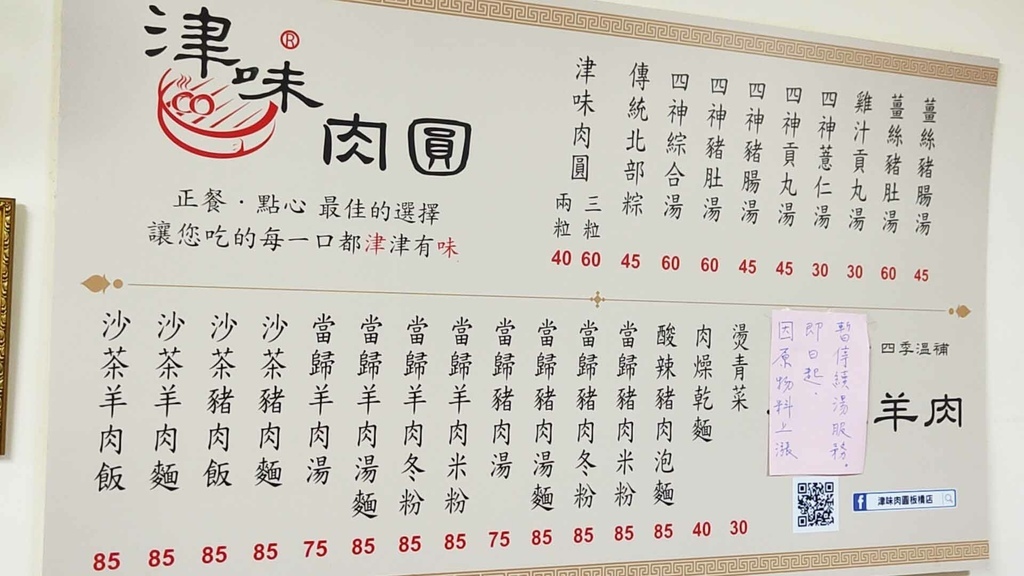 津味肉圓
®
正餐·點心 最佳的選擇
讓您吃的每一口都津津有味
薑絲豬腸湯 45
薑絲豬肚湯 60
雞汁貢丸湯 30
四神薏仁湯 30
四神貢丸湯 45
四神豬腸湯 45
四神豬肚湯 60
四神綜合湯 60
傳統北部粽 45
津味肉圓
三粒 60
兩粒 40
四季溫補
羊肉
因原物料上漲
即日起,
暫停續湯服務.
燙青菜 30
肉燥乾麵 40
酸辣豬肉泡麵 85
當歸豬肉米粉 85
當歸豬肉冬粉 85
當歸豬肉湯麵 85
當歸豬肉湯 75
當歸羊肉米粉 85
當歸羊肉冬粉 85
當歸羊肉湯麵 85
當歸羊肉湯 75
沙茶豬肉麵 85
沙茶豬肉飯 85
沙茶羊肉麵 85
沙茶羊肉飯 85
f 津味肉圓板橋店